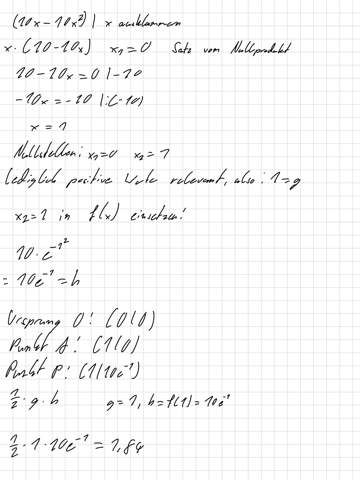 (10x - 10x²) | x ausklammern
x · (10 - 10x)   x₁ = 0   Satz vom Nullprodukt
10 - 10x = 0 | -10
-10x = -10 | :(-10)
x = 1
Nullstellen: x₁=0   x₂ = 1
Lediglich positive Werte relevant, also: 1=g
x₂=1 in f(x) einsetzen!
10 · e^-1²
= 10e⁻¹ = h
Ursprung O: (0|0)
Punkt A: (1|0)
Punkt P: (1|10e⁻¹)
½ · g · h   g = 1, h = f(1) = 10e⁻¹
½ · 1 · 10e⁻¹ = 1,84